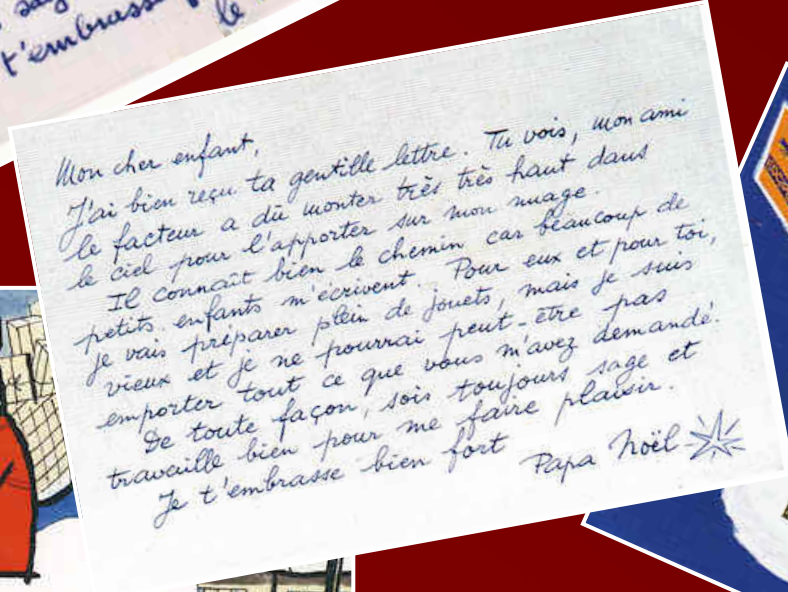 t'embrasse
le
Mon cher enfant,
J'ai bien reçu ta gentille lettre. Tu vois, mon ami
le facteur a dû monter très très haut dans
le ciel pour l'apporter sur mon nuage.
Il connaît bien le chemin car beaucoup de
petits enfants m'écrivent. Pour eux et pour toi,
je vais préparer plein de jouets, mais je suis
vieux et je ne pourrai peut-être pas
emporter tout ce que vous m'avez demandé.
De toute façon, sois toujours sage et
travaille bien pour me faire plaisir.
Je t'embrasse bien fort
Papa Noël